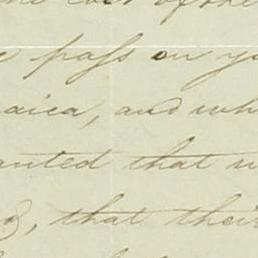 the cost of the
pass on yo
aica, and wh
anted that w
, that their